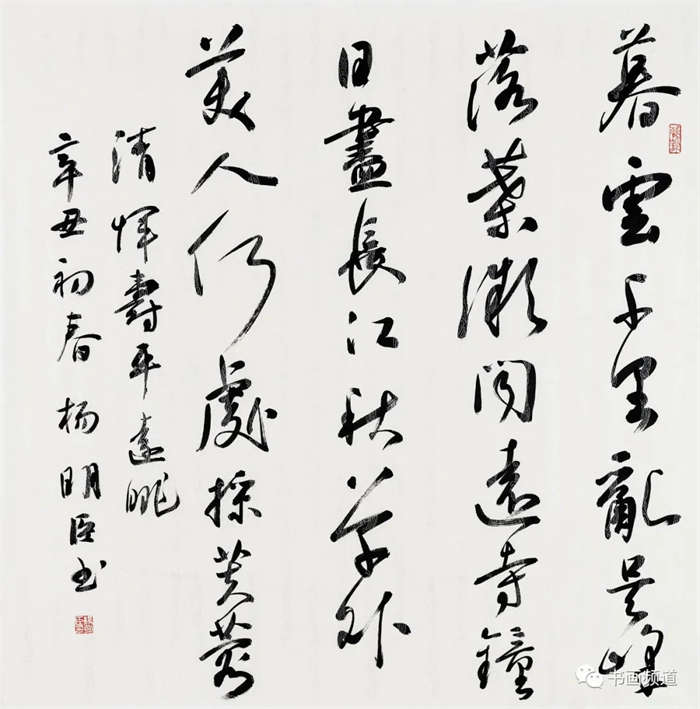 暮雲千里亂吳峰
落葉微聞遠寺鐘
日盡長江秋草外
美人何處採芙蓉
清惲壽平遠眺
辛丑初春楊明臣書
书画频道